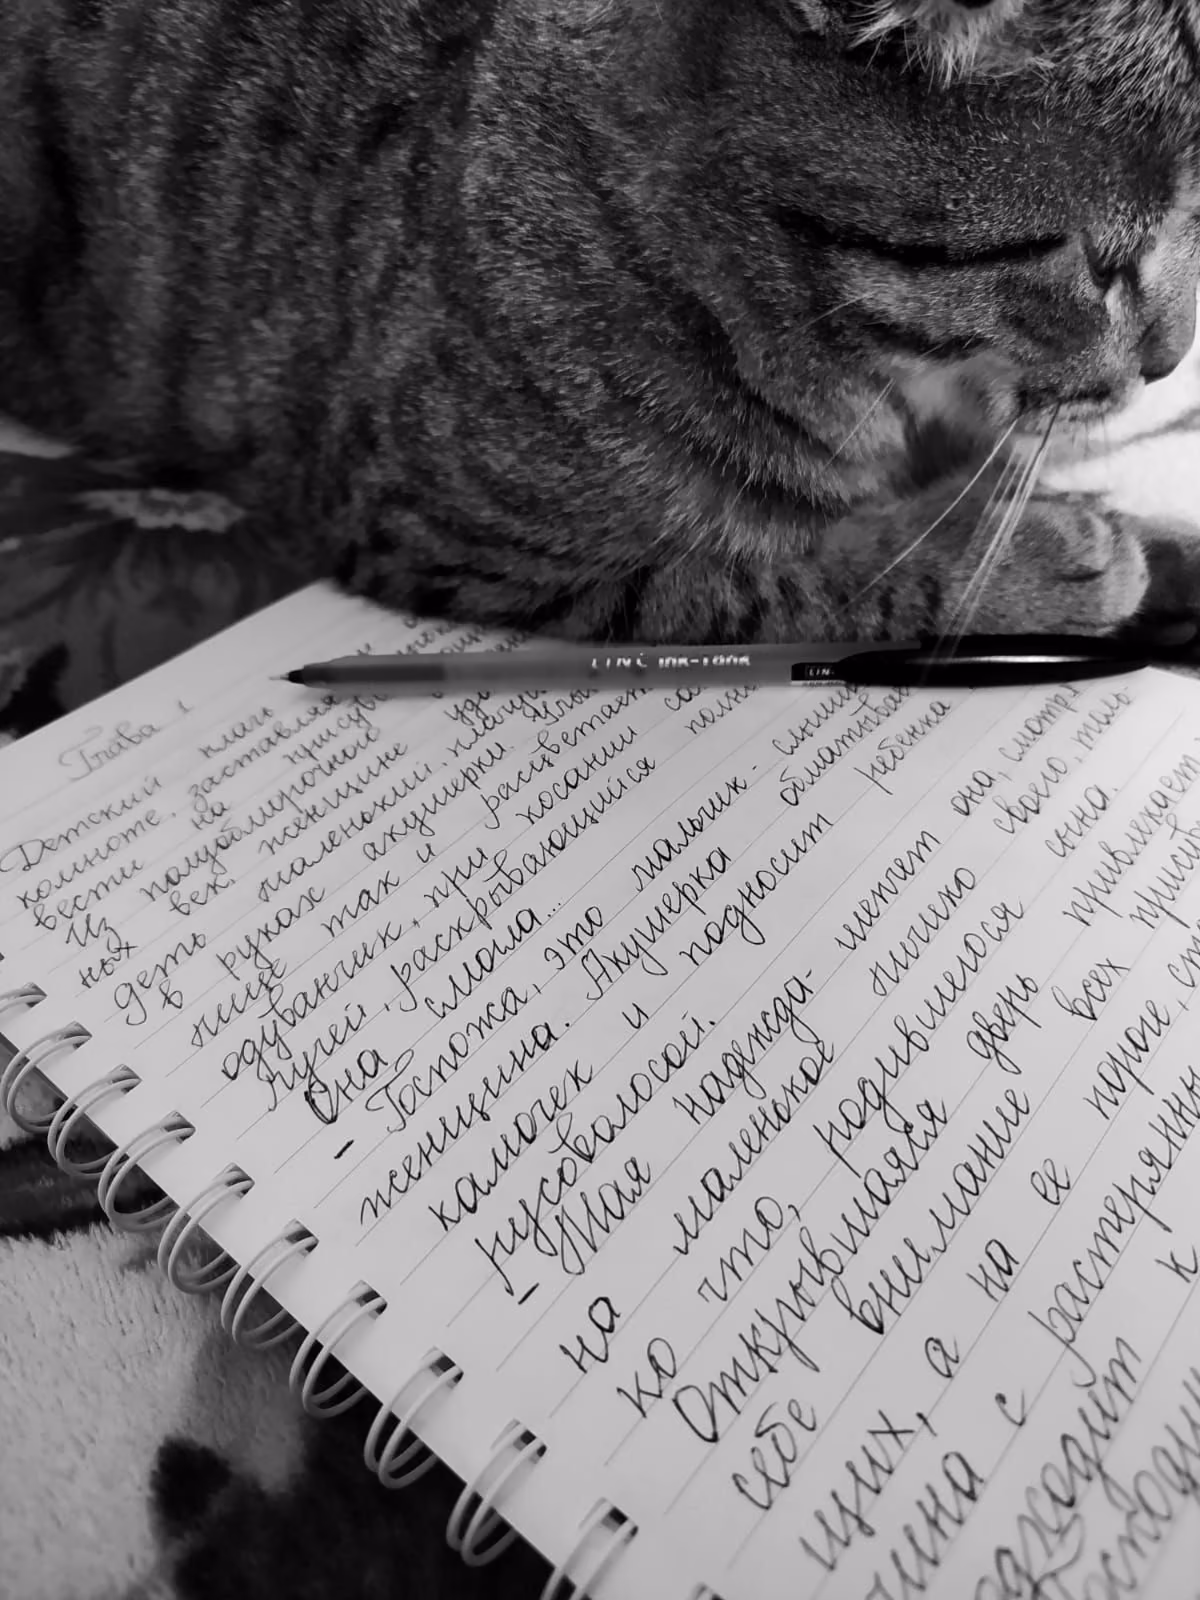 LINC Ink-Tank
LIN-
Глава 1
Детский плач
комнате, заставляя
вести на присут
Из полуоблизрочного
ных век. женщине уд
деть маленький, плачущ
в руках акушерки.
лице так и расцветает
одуванчик, при косании со
лучей, раскрывающийся полн
Она смогла...
- Госпожа, это мальчик - слыши
женщина. Акушерка обматывае
калочек и подносит ребенка
русоволосой.
- Моя надежда - шепчет она, смотря
на маленькое личико своего, толь-
ко что, родившегося сына.
Открывшаяся дверь привлекает
себе внимание всех присут
щих, а на ее пороге, ст
чина с растерянны
одходит к